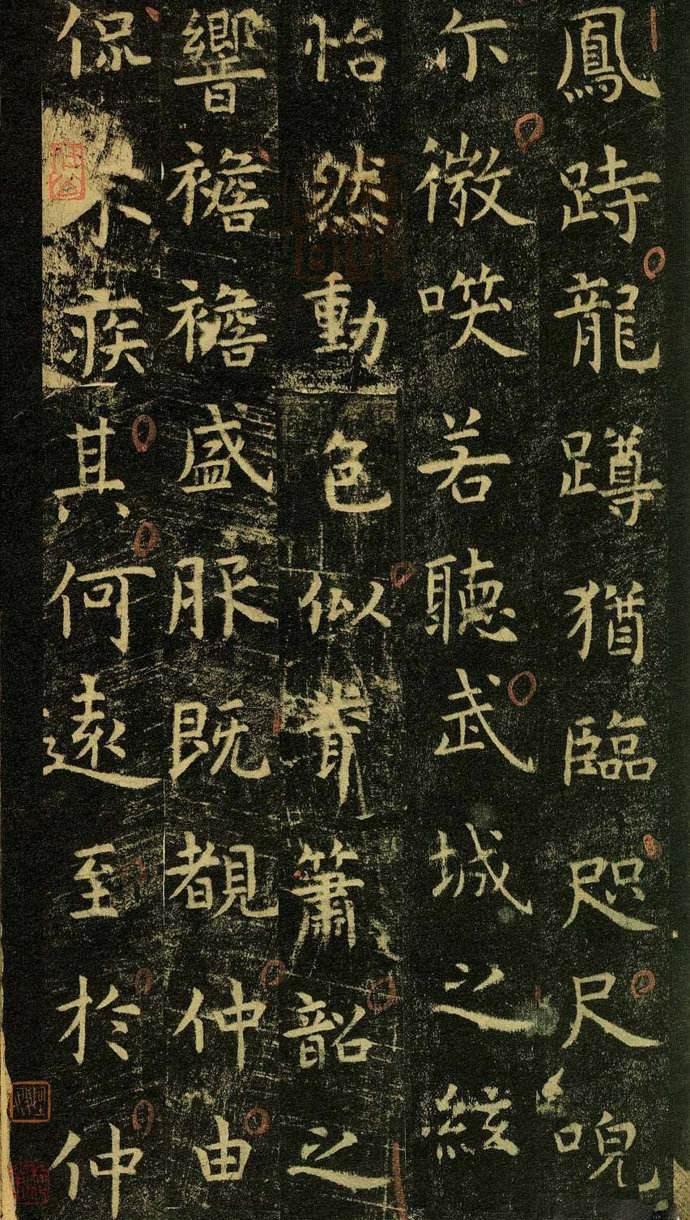 鳳跱龍蹲猶臨咫尺唲
尒微唉若聽武城之絃
怡然動色似聞簫韶之
響襜襜盛服既覩仲由
侃尒疾其何遠至於仲